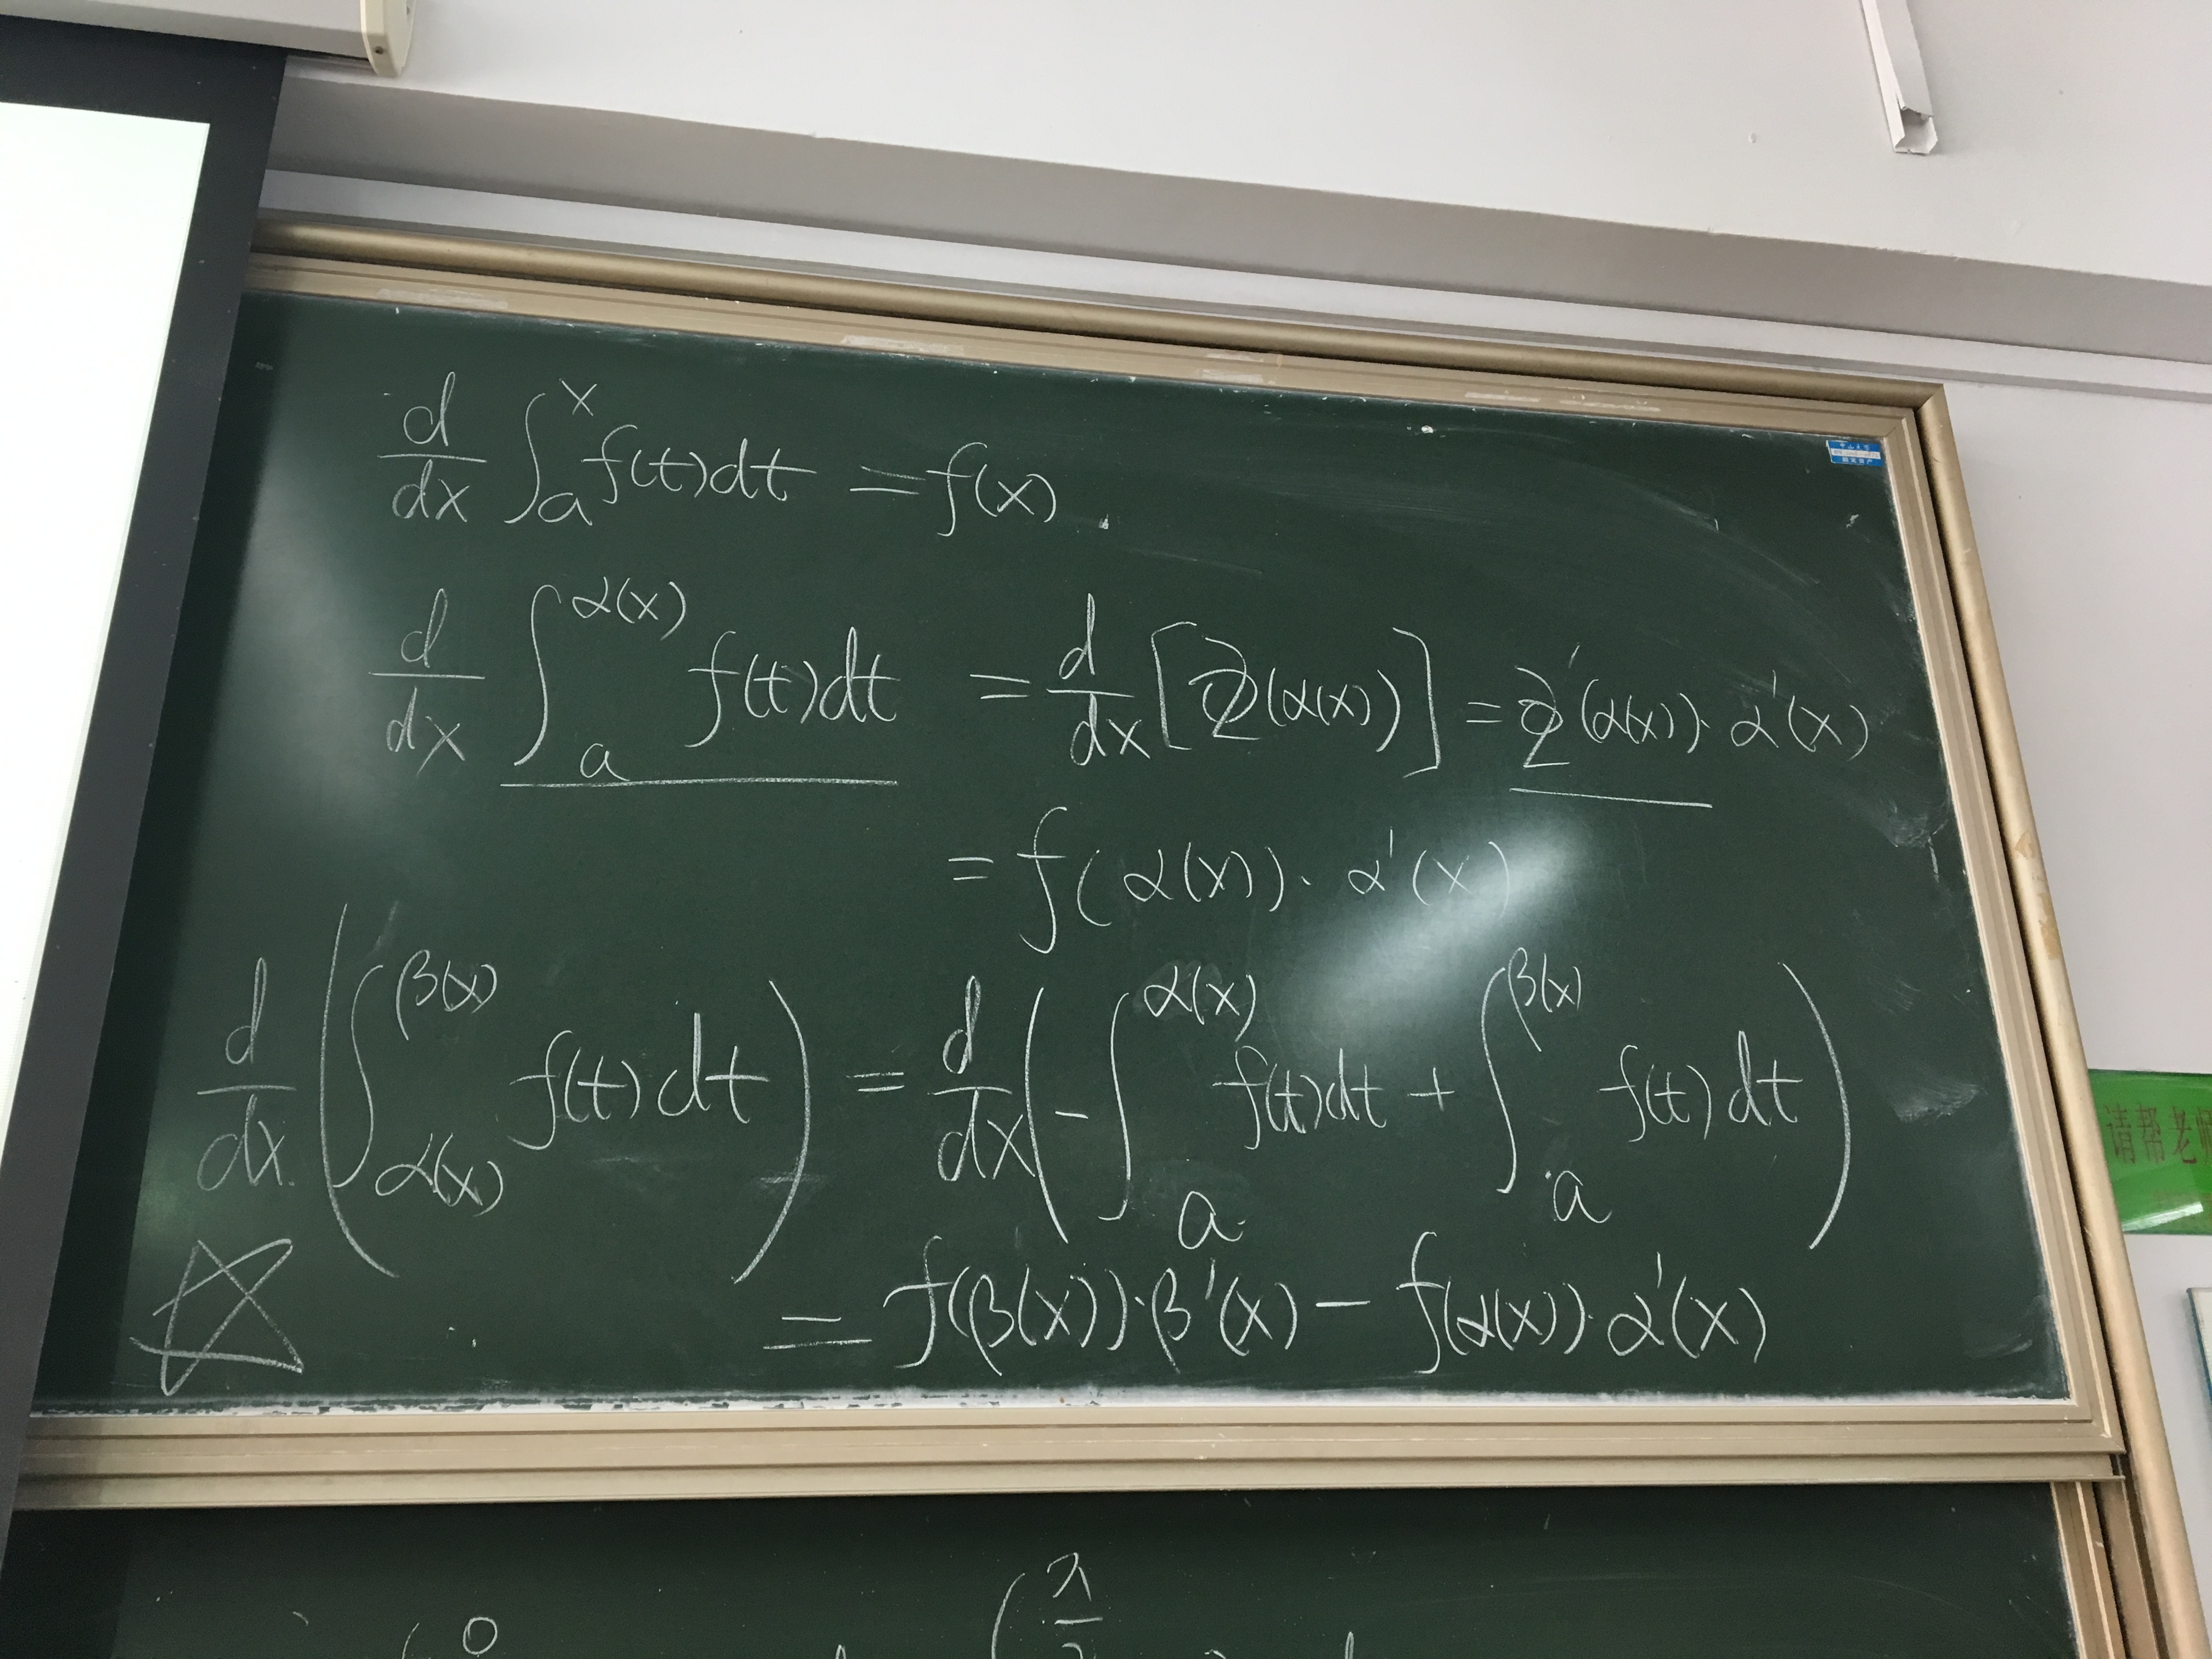 d/dx ∫_a^x f(t)dt = f(x).
d/dx ∫_a^{α(x)} f(t)dt = d/dx [Φ(α(x))] = Φ'(α(x))·α'(x)
= f(α(x))·α'(x)
d/dx (∫_{α(x)}^{β(x)} f(t)dt) = d/dx (-∫_a^{α(x)} f(t)dt + ∫_a^{β(x)} f(t)dt)
= f(β(x))·β'(x) - f(α(x))·α'(x)
请帮老师